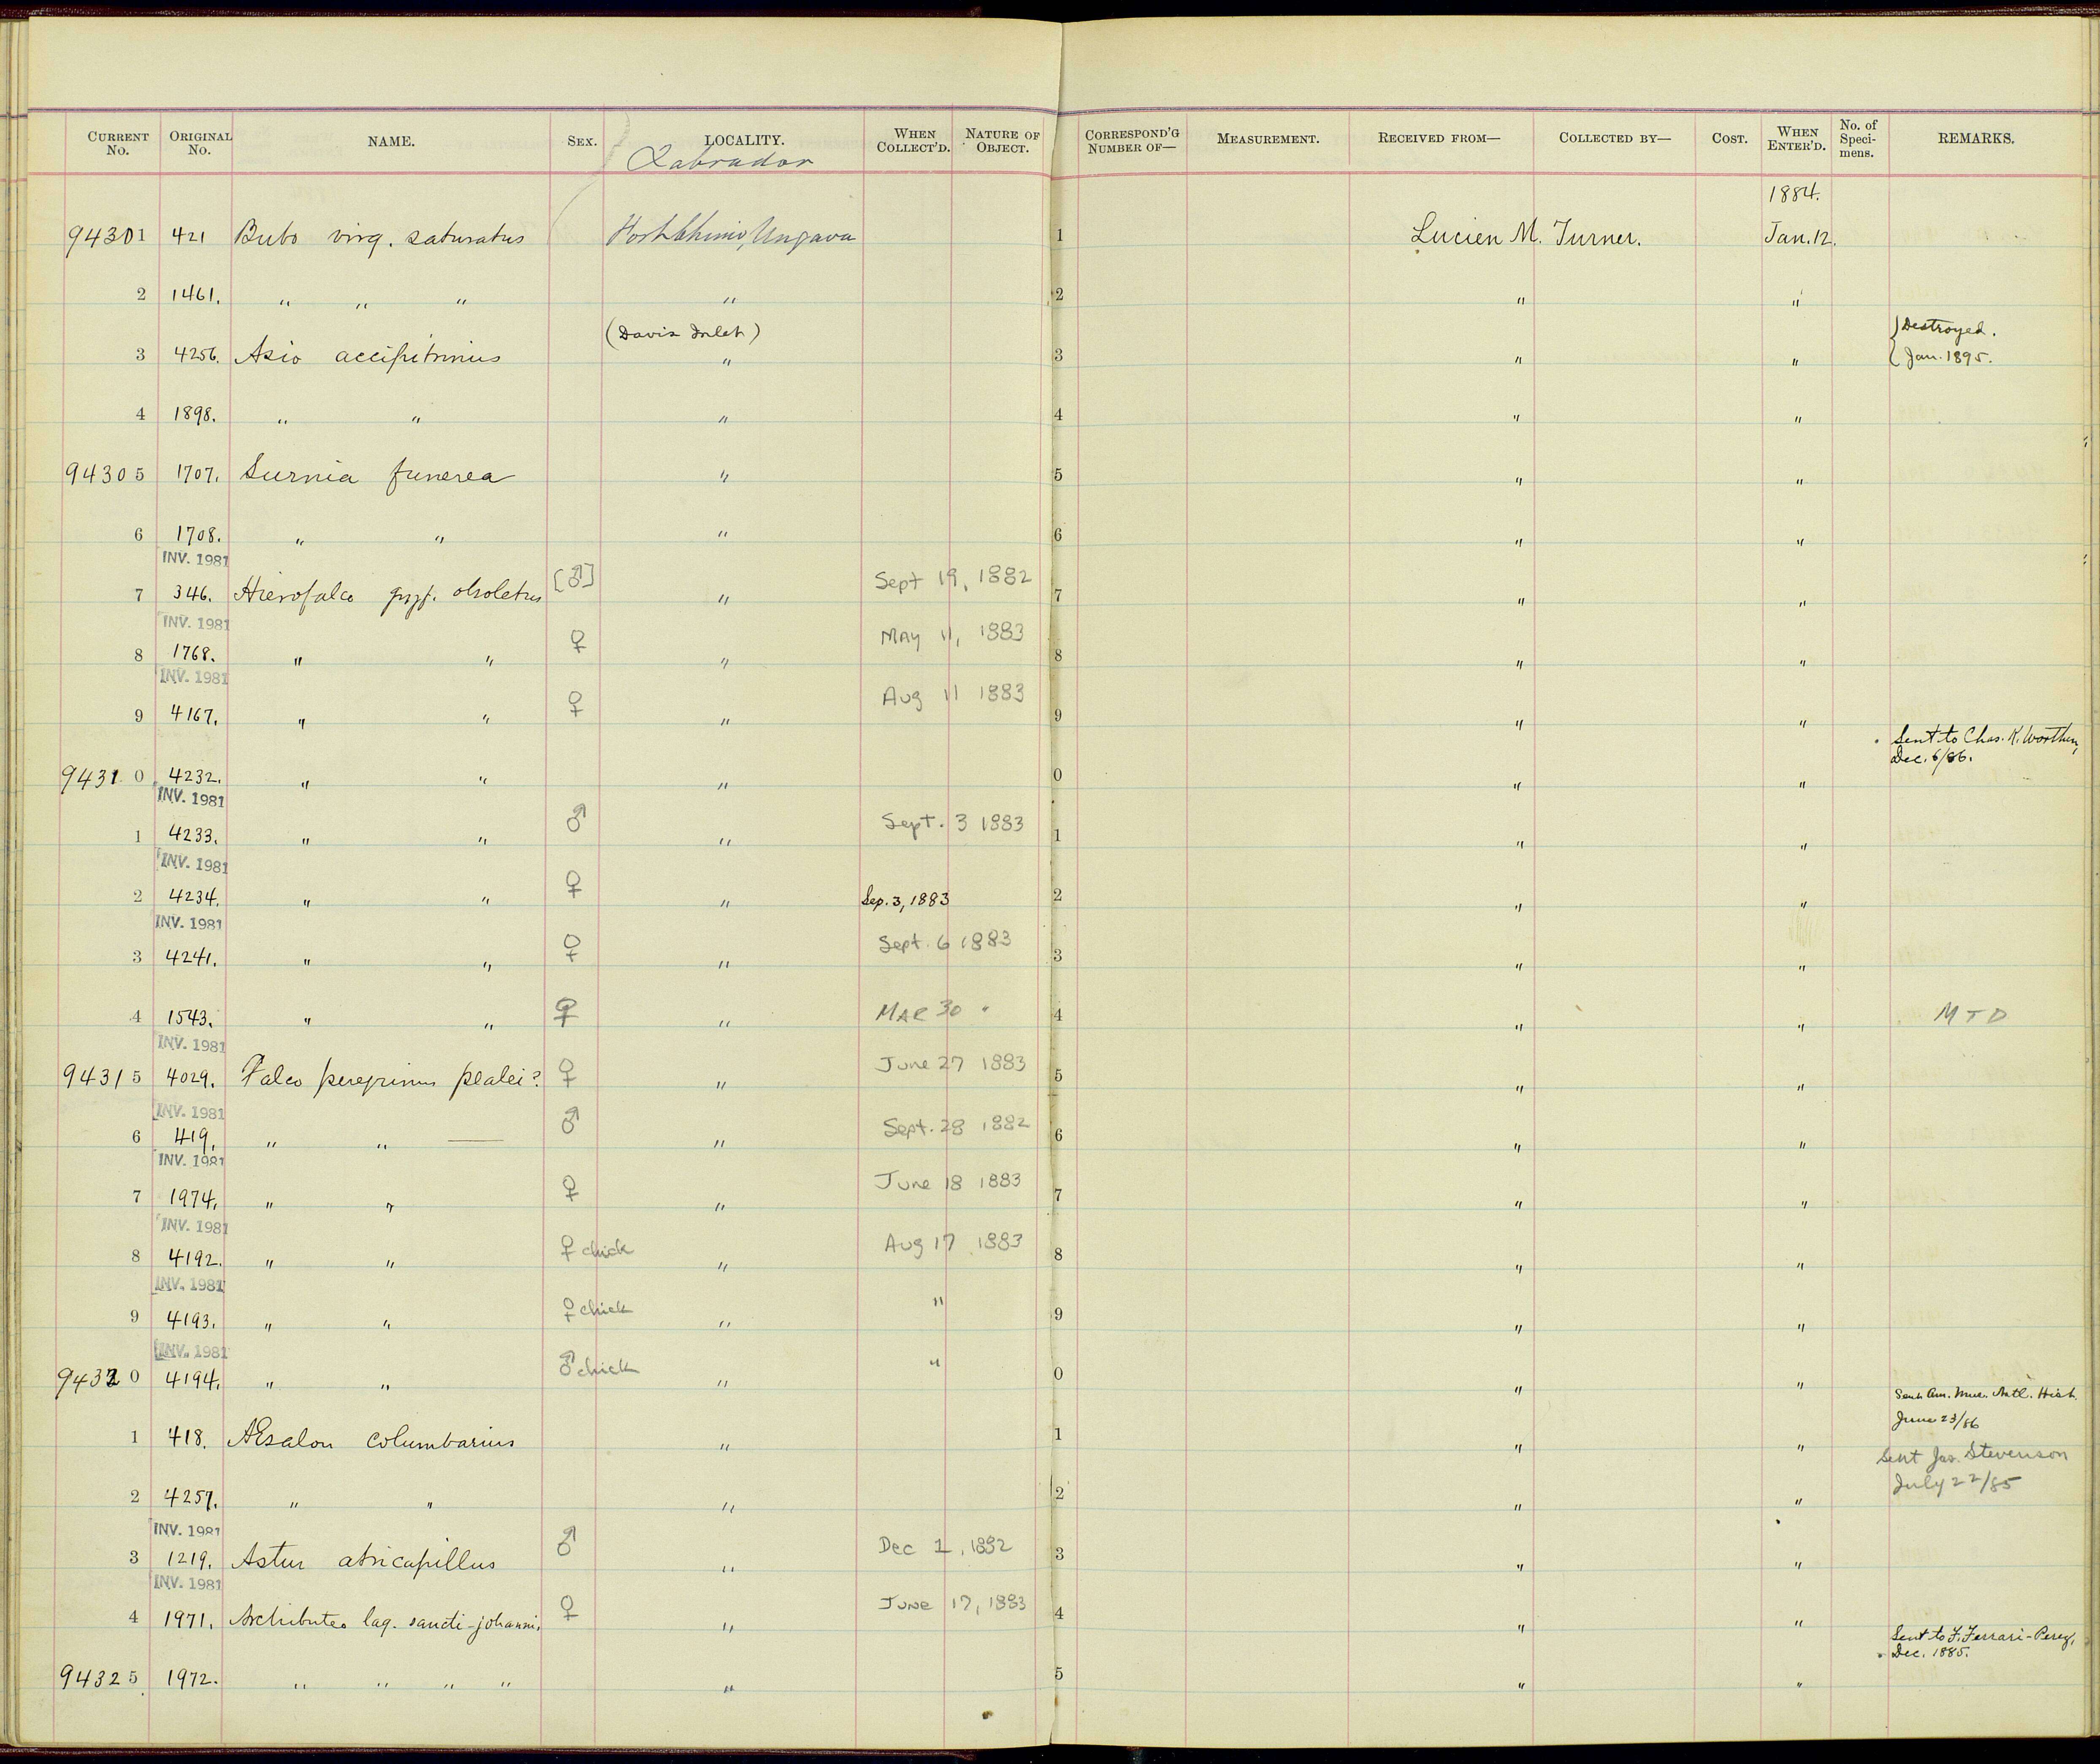 CURRENT No. ORIGINAL No. NAME. SEX. LOCALITY. WHEN COLLECT'D. NATURE OF OBJECT. CORRESPOND'G NUMBER OF— MEASUREMENT. RECEIVED FROM— COLLECTED BY— COST. WHEN ENTER'D. No. of Speci-mens. REMARKS.
Labrador
1884.
94301 421 Bubo virg. saturatus Fort Chimo, Ungava 1 Lucien M. Turner. Jan. 12.
2 1461. " " " " 2 " "
(Davis Inlet) Destroyed.
3 4256. Asio accipitrinus " 3 " " Jan. 1895.
4 1898. " " " 4 " "
94305 1707. Surnia funerea " 5 " "
6 1708. " " " 6 " "
INV. 1981
7 346. Hierofalco gyrf. obsoletus [♂] " Sept 19, 1882 7 " "
INV. 1981
8 1768. " " ♀ " MAY 11, 1883 8 " "
INV. 1981
9 4167. " " ♀ " Aug 11 1883 9 " "
Sent to Chas. K. Worthen,
Dec. 6/86.
94310 4232. " " " 0 " "
INV. 1981
1 4233. " " ♂ " Sept. 3 1883 1 " "
INV. 1981
2 4234. " " ♀ " Sep. 3, 1883 2 " "
INV. 1981
3 4241. " " ♀ " Sept. 6 1883 3 " "
4 1543. " " ♀ " MAR 30 " 4 " " MTD
INV. 1981
94315 4029. Falco peregrinus pealei? ♀ " June 27 1883 5 " "
INV. 1981
6 419. " " — ♂ " Sept. 28 1882 6 " "
INV. 1981
7 1974. " " ♀ " June 18 1883 7 " "
INV. 1981
8 4192. " " ♀ chick " Aug 17 1883 8 " "
INV. 1981
9 4193. " " ♀ chick " " 9 " "
INV. 1981
94320 4194. " " ♂ chick " " 0 " "
Sent Am. Mus. Natl. Hist.
June 23/86
1 418. Æsalon columbarius " 1 " "
Sent Jas. Stevenson
July 22/85
2 4257. " " " 2 " "
INV. 1981
3 1219. Astur atricapillus ♂ " Dec 1, 1882 3 " "
INV. 1981
4 1971. Archibuteo lag. sancti-johannis ♀ " June 17, 1883 4 " "
Sent to F. Ferrari-Perez,
Dec. 1885.
94325. 1972. " " " " " 5 " "